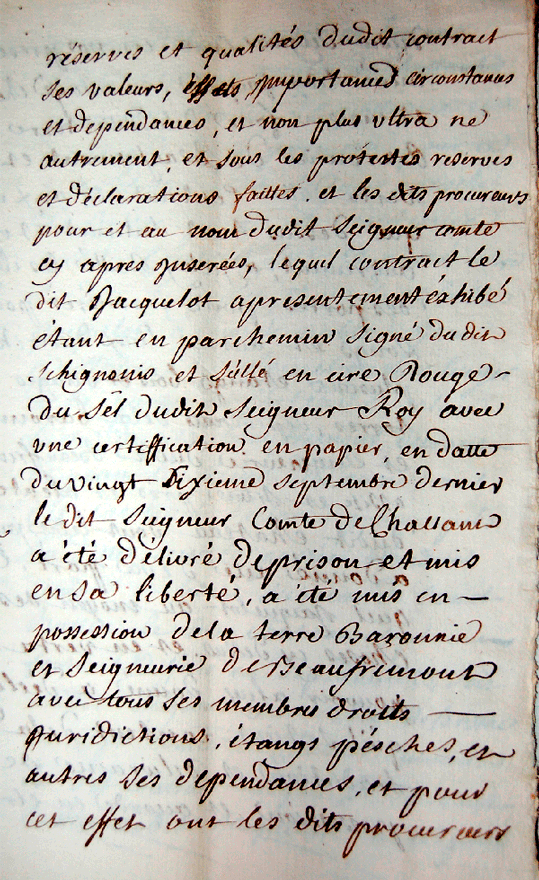 réserves et qualités dudit contract
ses valeurs, effets, importances circonstances
et dependances, et non plus ultra ne
autrement, et sous les protestes reserves
et déclarations faittes. et les dits procureurs
pour et au nom dudit Seigneur comte
cy apres inserées, lequel contract le
dit Jacquelot apresentement éxhibé
étant en parchemin signé dudit
et séllé en cire Rouge
du sél dudit seigneur Roy avec
une certiffication en papier, en datte
du vingt sixieme septembre dernier
le dit Seigneur Comte de Challant
a été délivré deprison et mis
en sa liberté, a été mis en —
possession dela terre Baronnie
et Seigneurie de Beaufremont
avec tous ses membres droits —
Juridictions, étangs pésches, et
autres ses dependances, et pour
cet effet ont les dits procureurs